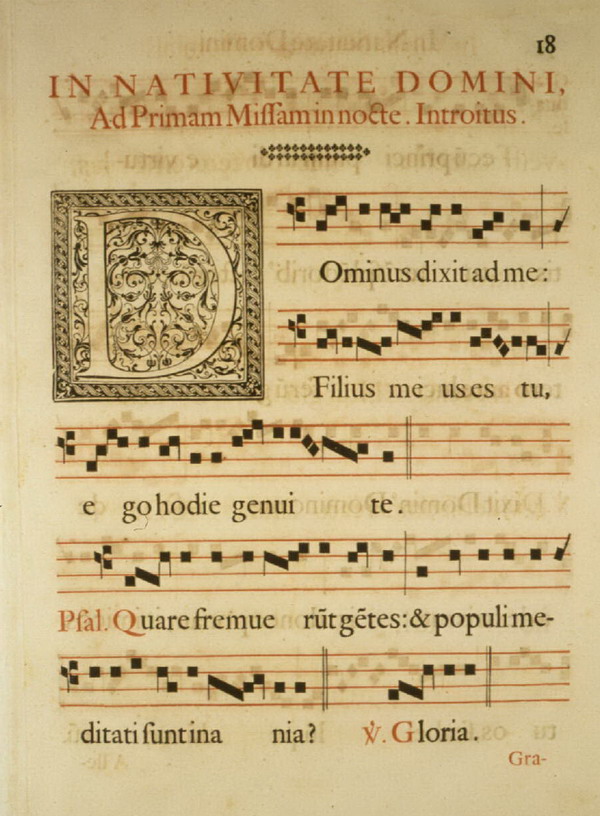 18
IN NATIVITATE DOMINI,
Ad Primam Miſſam in nocte. Introitus.
DOminus dixit ad me:
Filius me us es tu,
e go hodie genui te.
Pſal. Quare fremue rūt gētes: & populi me-
ditati ſunt ina nia? ℣. Gloria.
Gra-